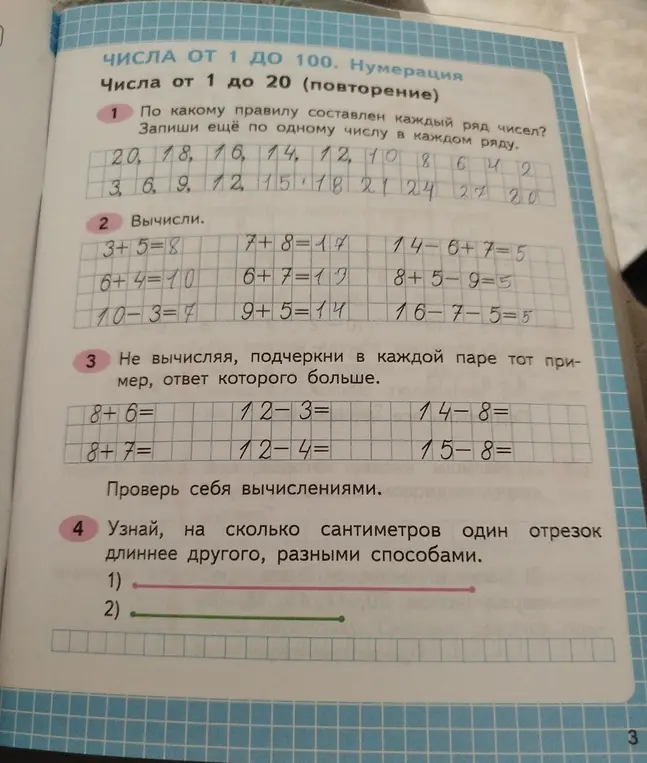 ЧИСЛА ОТ 1 ДО 100. Нумерация
Числа от 1 до 20 (повторение)
1 По какому правилу составлен каждый ряд чисел?
Запиши ещё по одному числу в каждом ряду.
20, 18, 16, 14, 12, 10 8 6 4 2
3, 6, 9, 12, 15, 18 21 24 27
2 Вычисли.
3+5=8 7+8=17 14-6+7=5
6+4=10 6+7=13 8+5-9=5
10-3=7 9+5=14 16-7-5=5
3 Не вычисляя, подчеркни в каждой паре тот при-
мер, ответ которого больше.
8+6= 12-3= 14-8=
8+7= 12-4= 15-8=
Проверь себя вычислениями.
4 Узнай, на сколько сантиметров один отрезок
длиннее другого, разными способами.
1)
2)
3